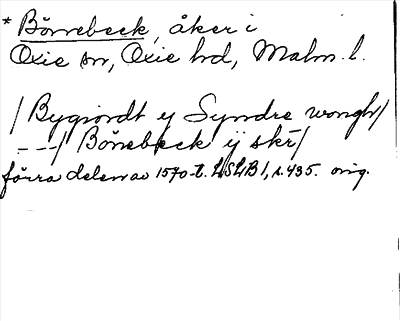 * Börrebeck, åker i
Oxie sn, Oxie hd, Malm. l.
/ Bygiordt ey Syndre wongh/
---/ Bönebeck ij skr/
förra delen av 1570-t. LSLB 1, s. 435. orig.